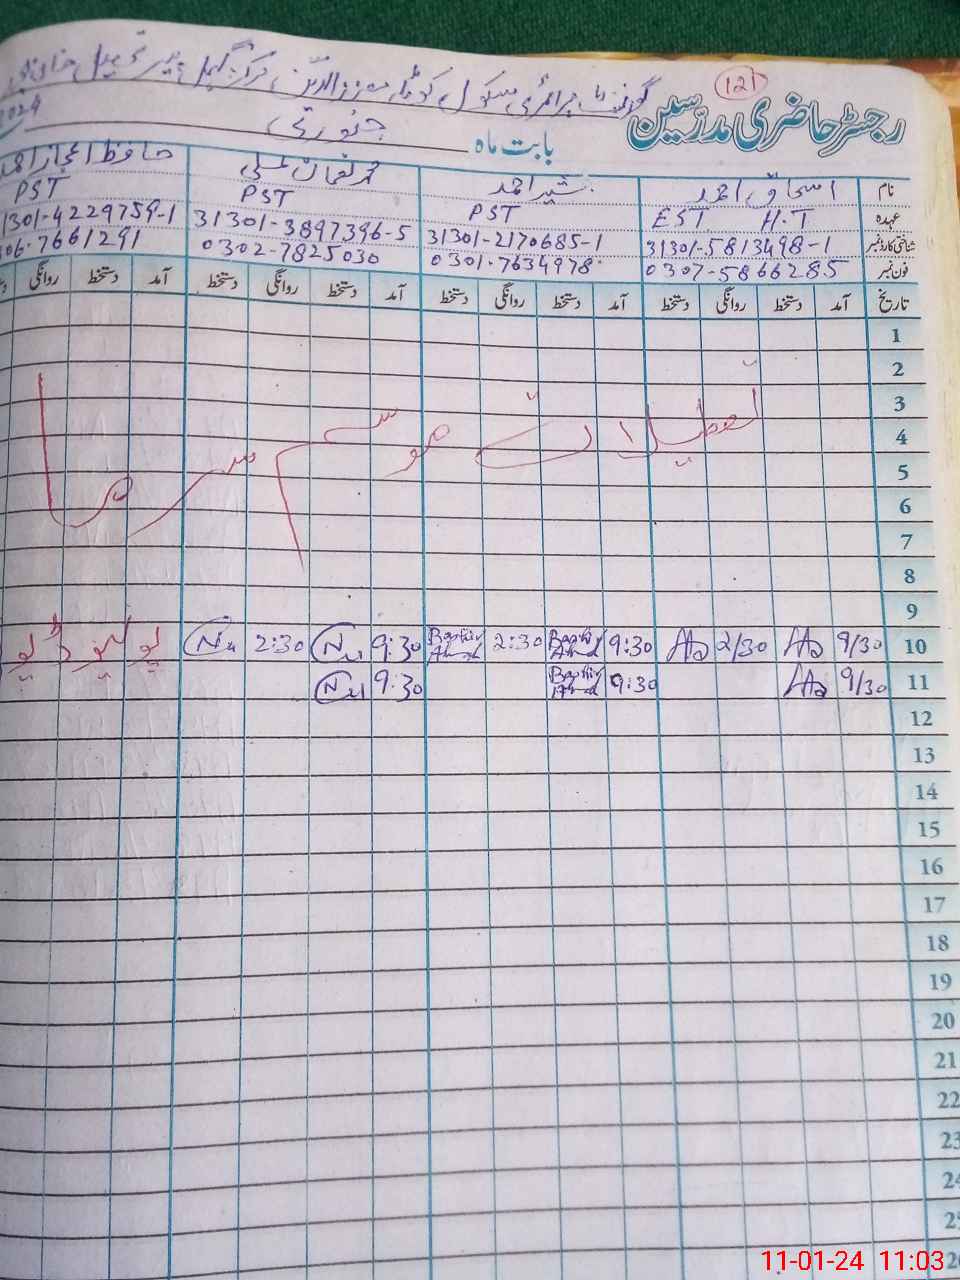 121
رجسٹر حاضری مدرسین
گورنمنٹ پرائمری سکول
بابت ماہ جنوری 2024
نام اسحاق احمد بشیر احمد محمد نعمان علی حافظ اعجاز احمد
عہدہ EST H.T PST PST PST
شناختی کارڈ نمبر 31301-5813498-1 31301-2170685-1 31301-3897396-5 1301-4229759-1
فون نمبر 0307-5866285 0301-7634978 0302-7825030 306-7661291
تاریخ آمد دستخط روانگی دستخط آمد دستخط روانگی دستخط آمد دستخط روانگی دستخط آمد دستخط روانگی
1
2
3
تعطیلات موسم سرما
4
5
6
7
8
9
10 9/30 2/30 9:30 Bashir Ahmad 2:30 Bashir Ahmad 9:30 2:30
11 9/30 9:30 Bashir Ahmad 9:30
12
13
14
15
16
17
18
19
20
21
22
23
24
25
26
11-01-24 11:03